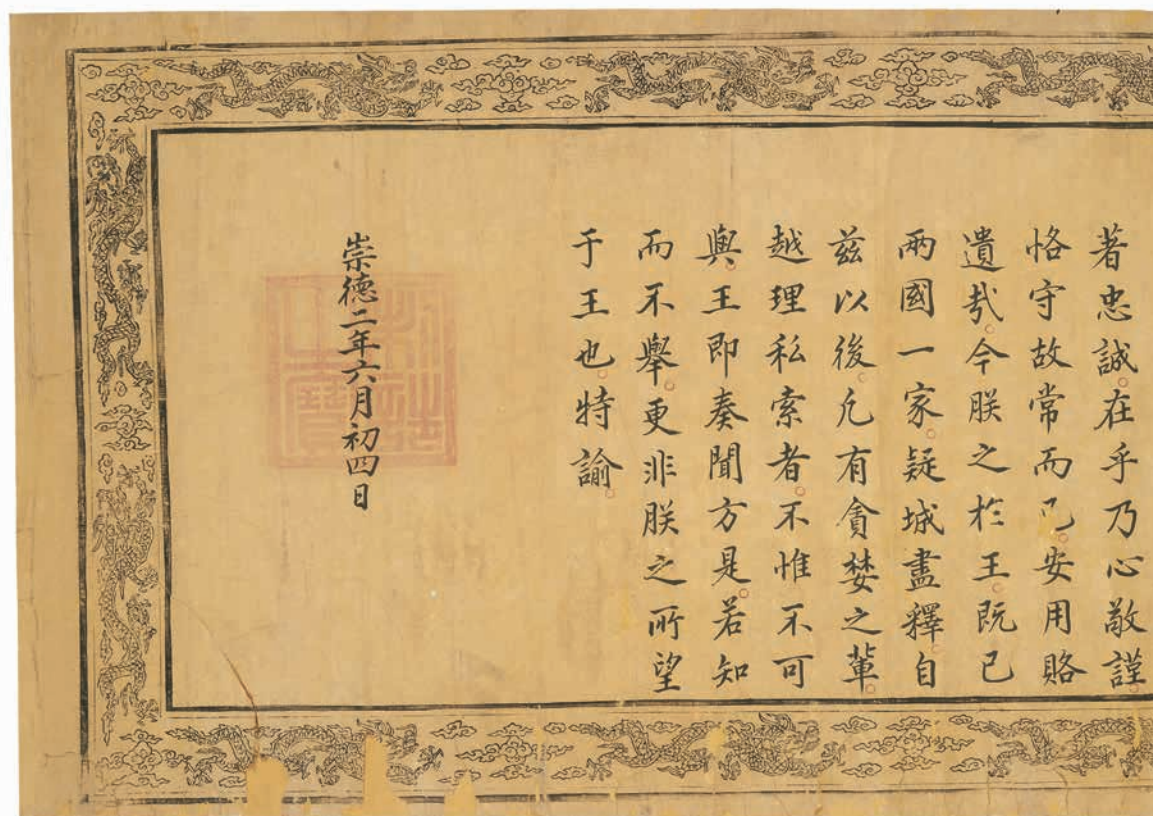 著忠誠。在乎乃心敬謹。
恪守故常而已。安用賂
遺哉。今朕之於王。既已
兩國一家。疑城盡釋。自
兹以後。凡有貪婪之輩。
越理私索者。不惟不可
與。王即奏聞方是。若知
而不舉。更非朕之所望
于王也。特諭。
崇德二年六月初四日
制誥之寶